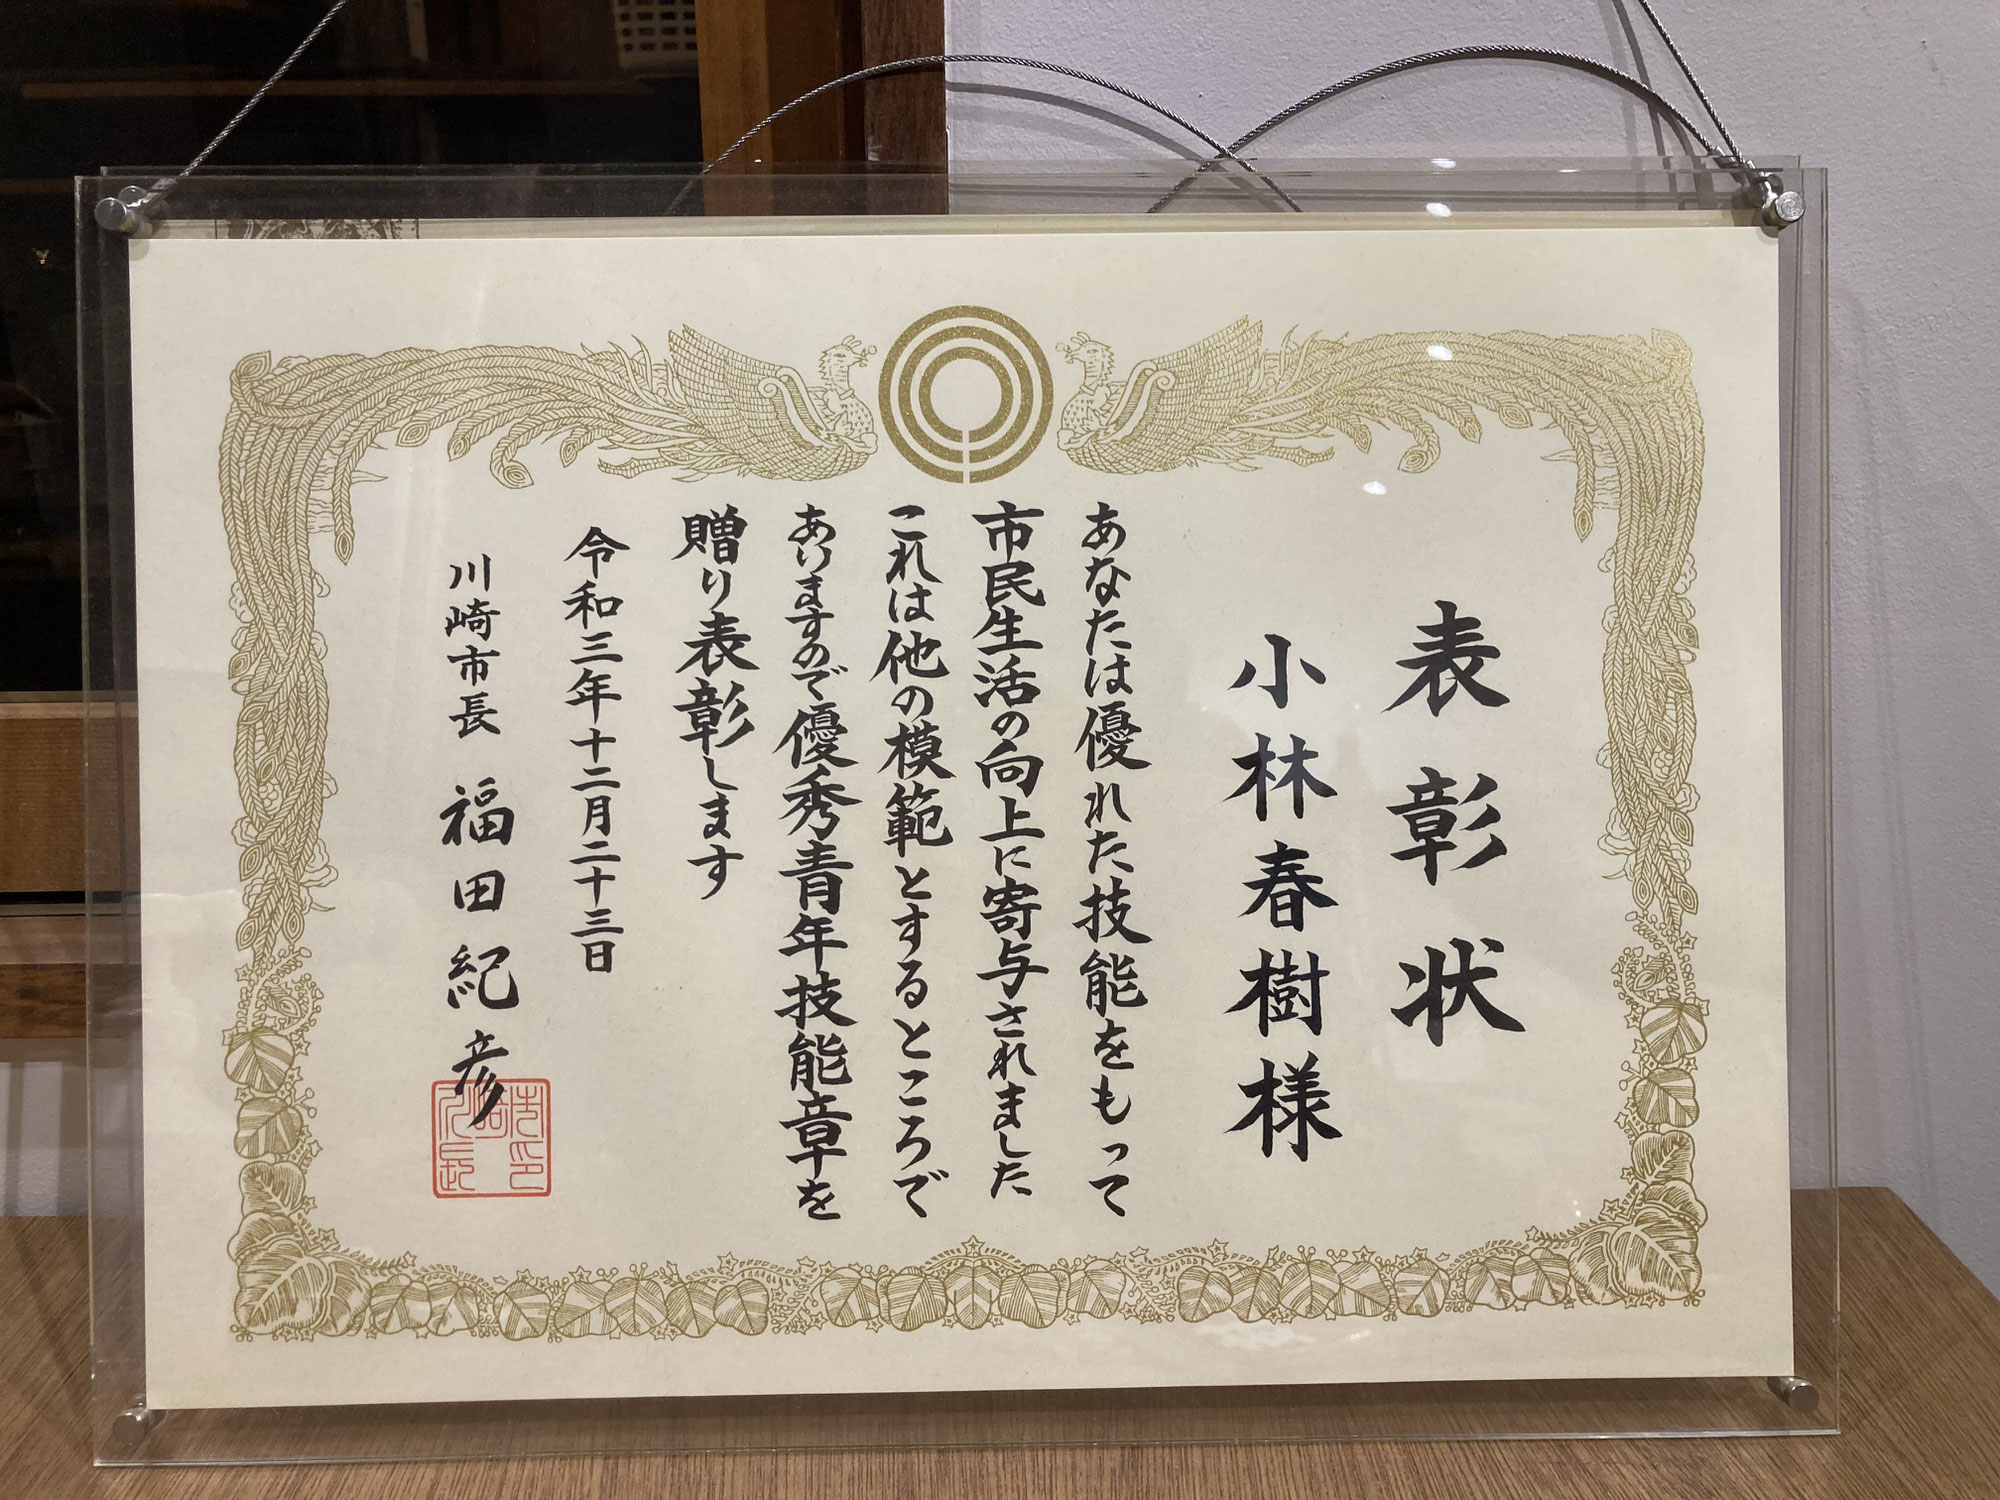 表彰状
小林春樹様
あなたは優れた技能をもって
市民生活の向上に寄与されました
これは他の模範とするところで
ありますので優秀青年技能章を
贈り表彰します
令和三年十二月二十三日
川崎市長 福田紀彦
川崎市長印